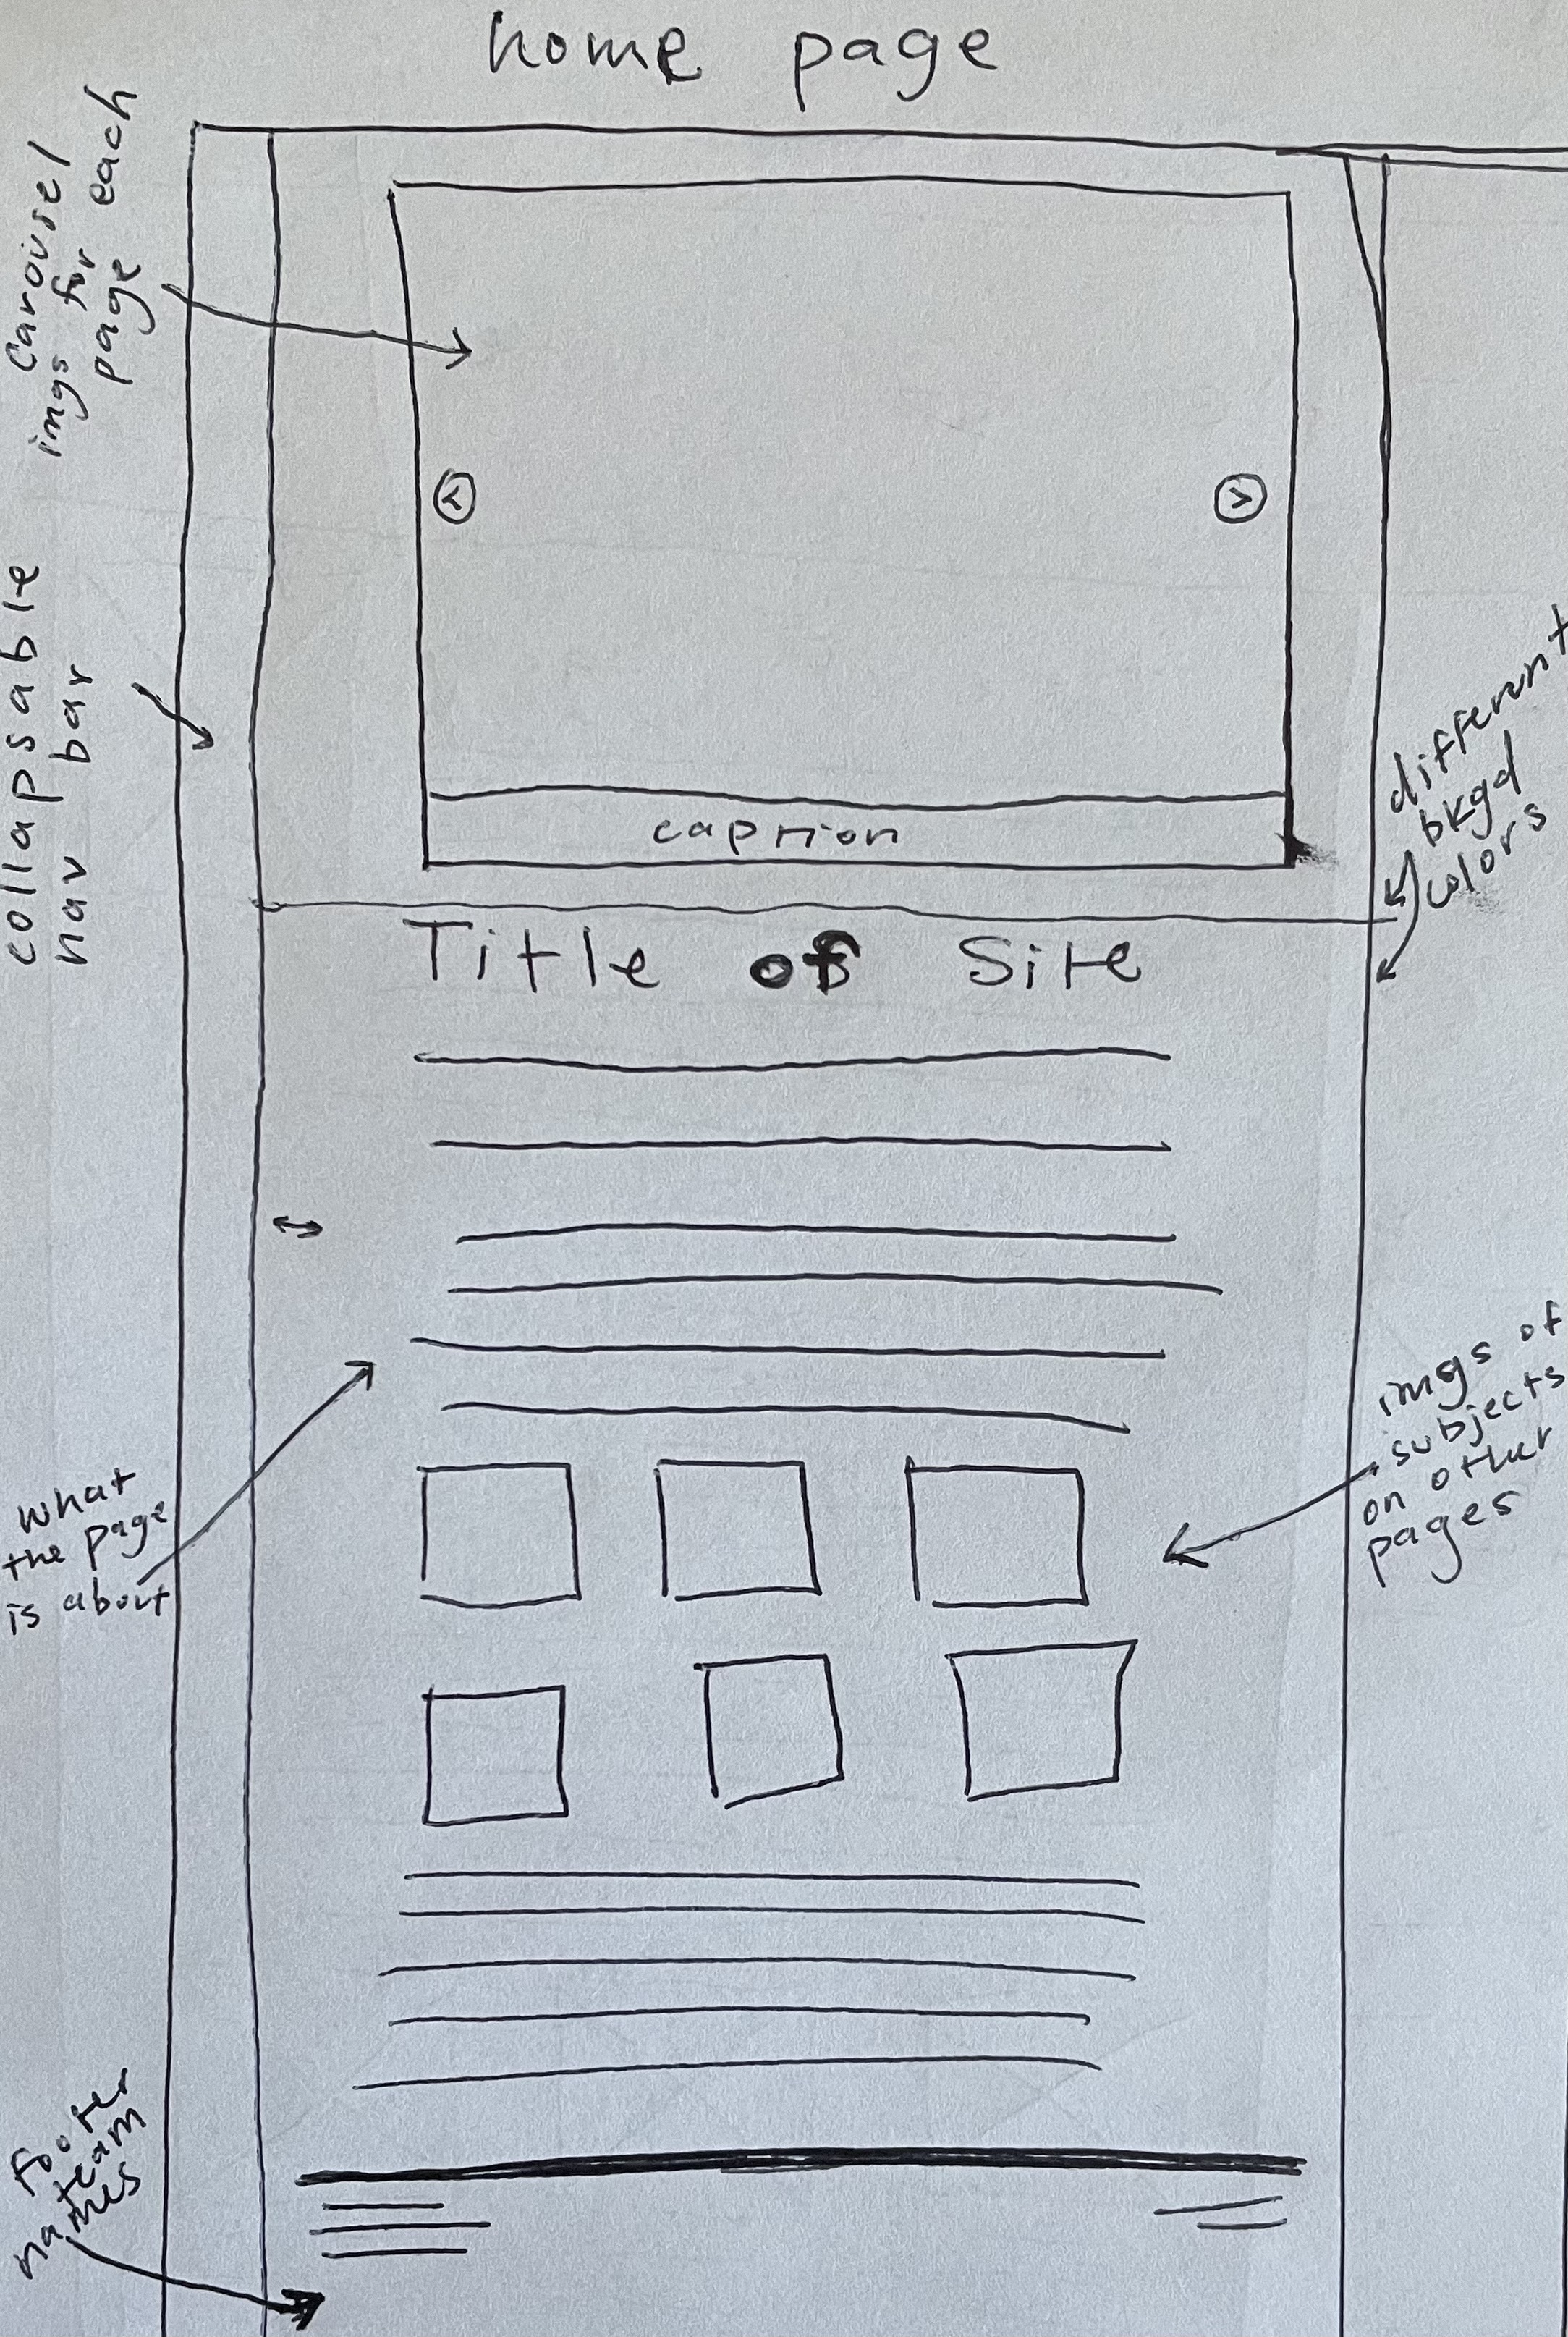 home page
carousel
imgs for each
page
collapsable
nav bar
<
>
caption
different
bkgd
colors
Title of Site
what
the page
is about
imgs of
subjects
on other
pages
footer
team
names